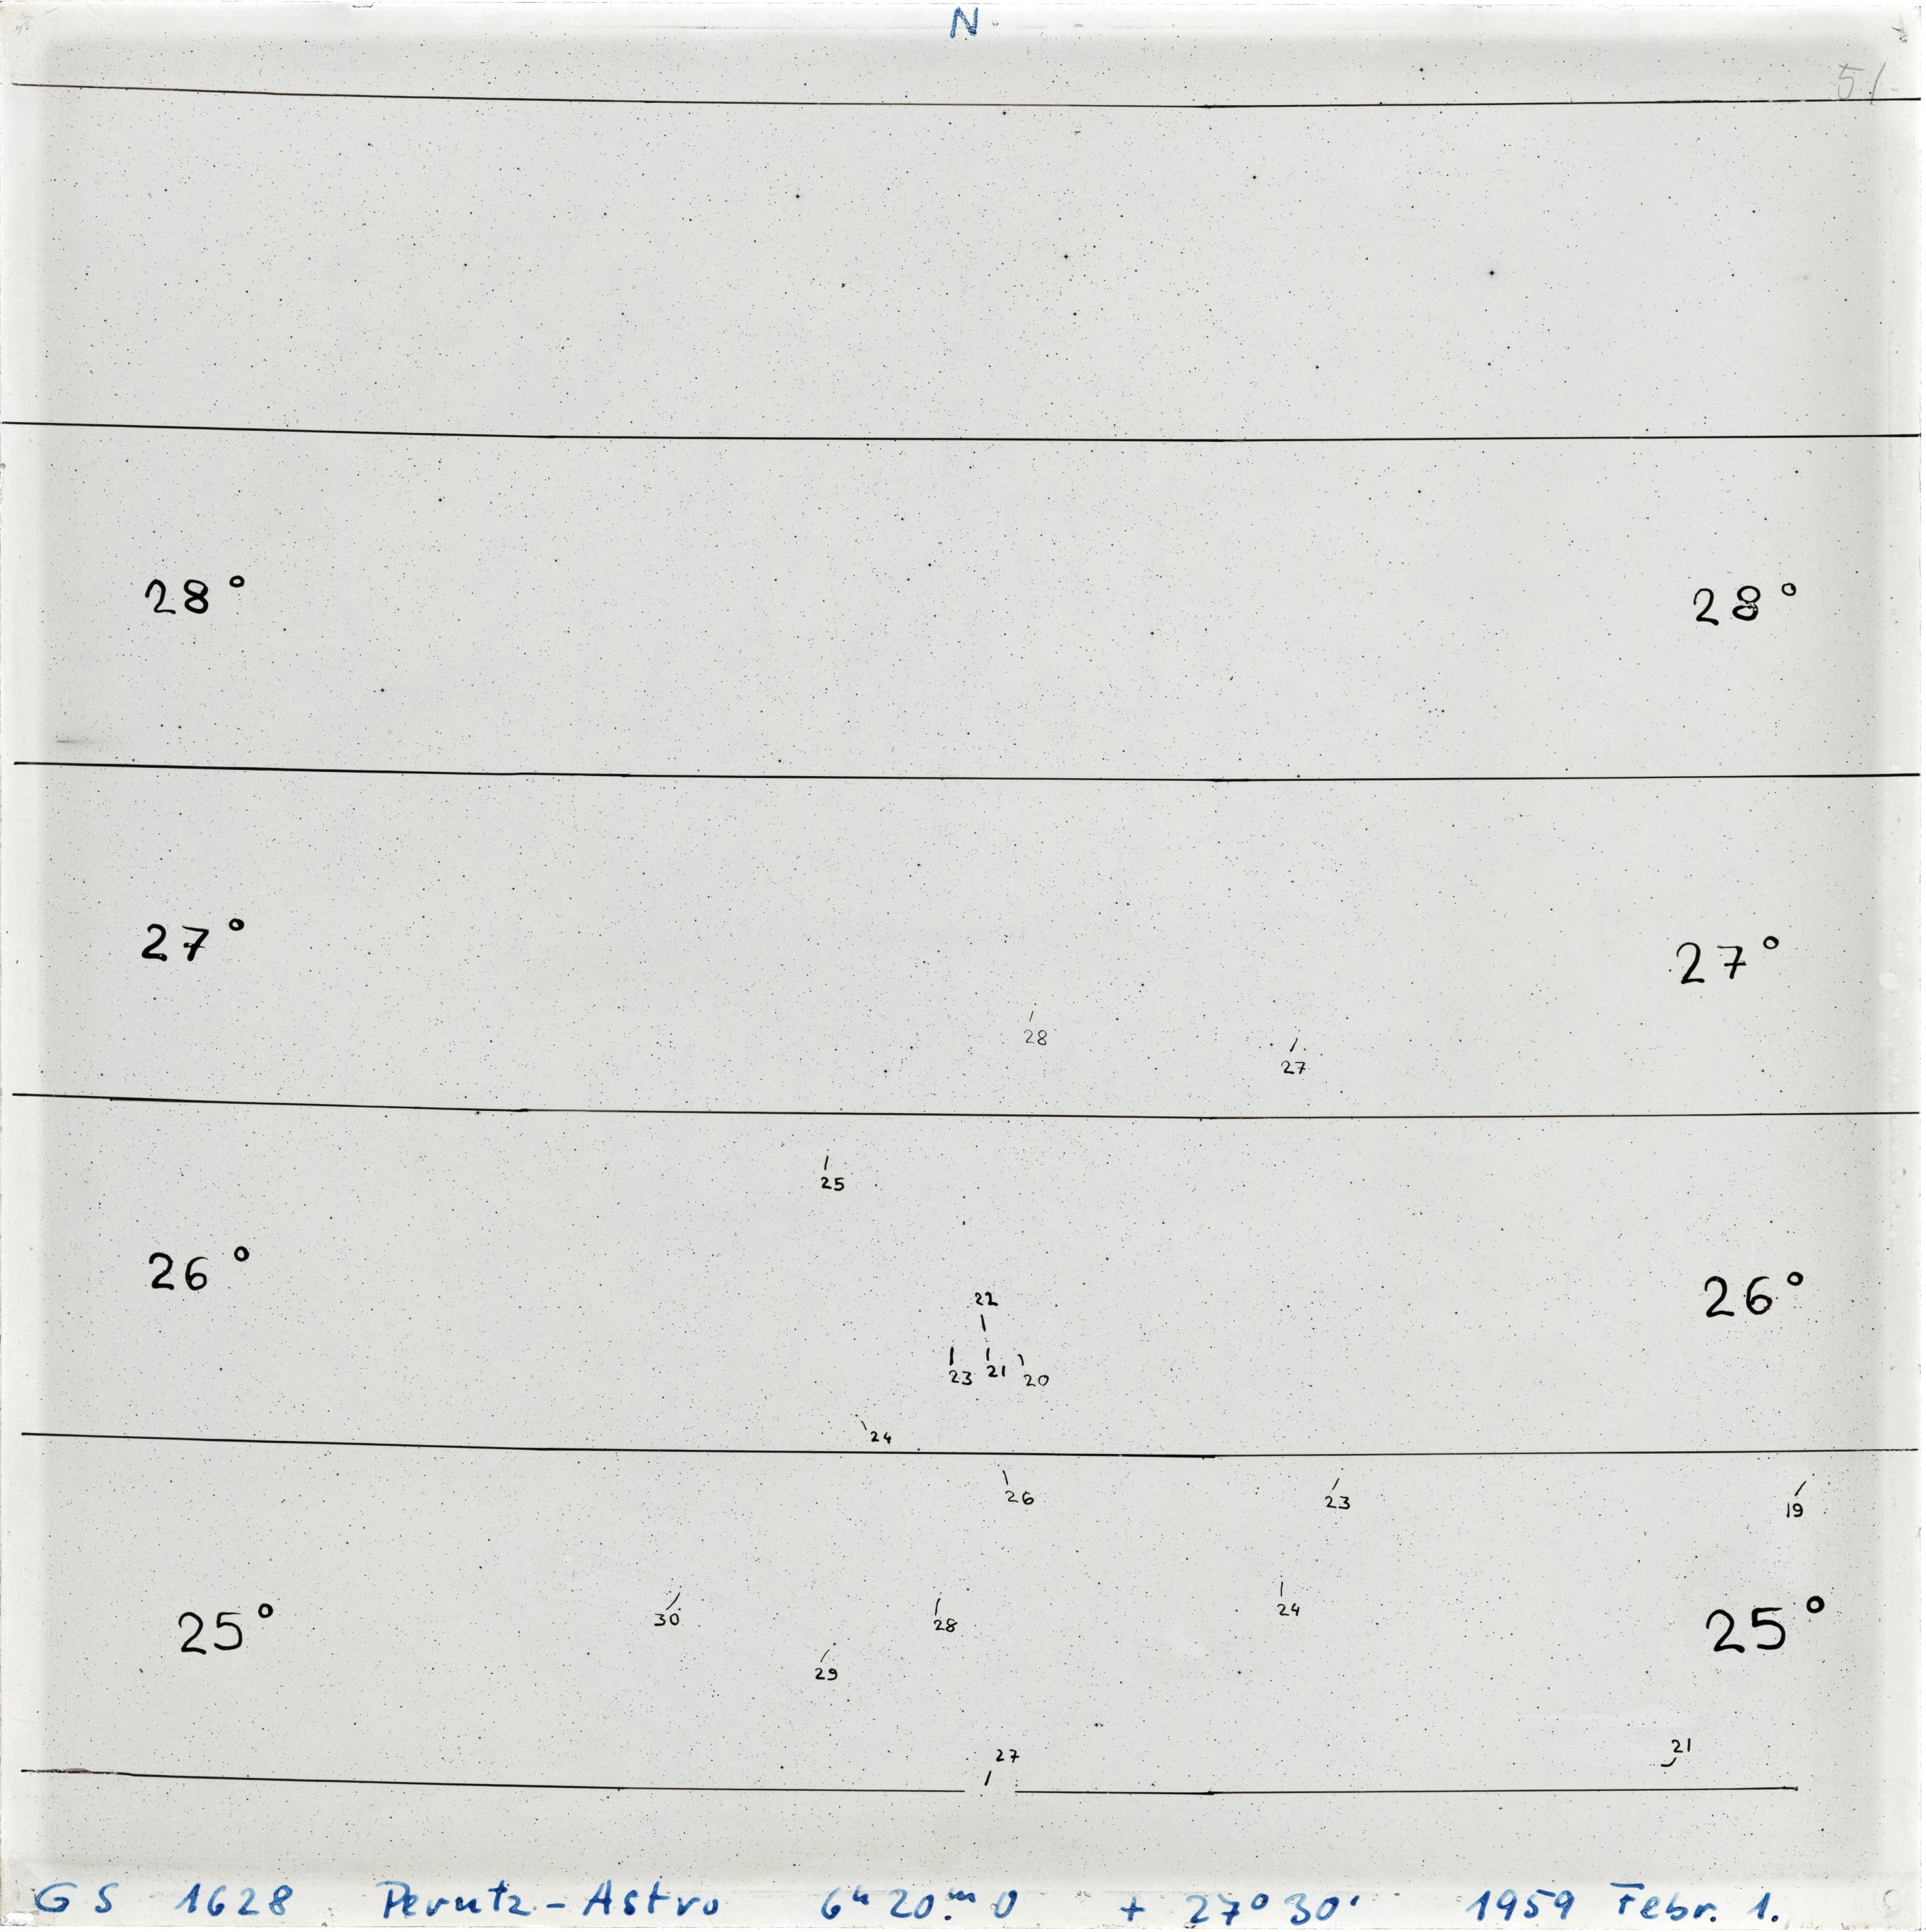 N
51
28° 28°
27° 27°
28
27
25
26° 26°
22
23 21 20
24
26 23 19
30 28 24
25° 25°
29
27 21
GS 1628 Perutz-Astro 6h 20.m 0 + 27° 30' 1959 Febr. 1.